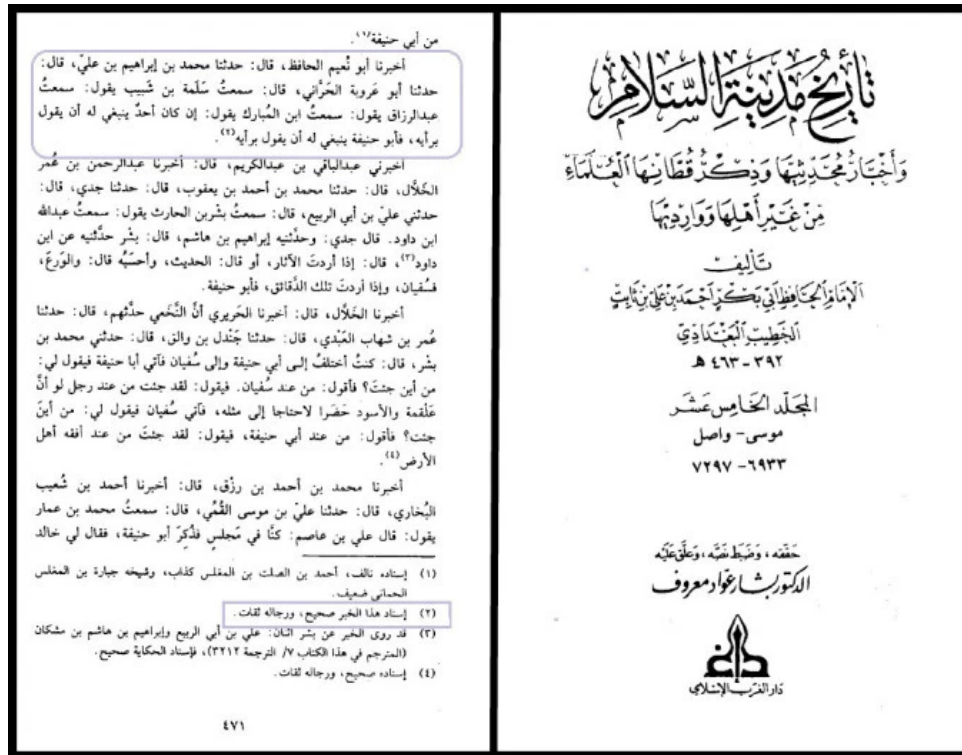 تاريخ مدينة السلام
وأخبار محدثيها وذكر قطانها العلماء
من غير أهلها ووارديها
تأليف
الإمام الحافظ أبي بكر أحمد بن علي بن ثابت
الخطيب البغدادي
٣٩٢-٤٦٣ هـ
المجلد الخامس عشر
موسى - واصل
٦٩٣٣- ٧٢٩٧
حققه، وضبط نصه، وعلق عليه
الدكتور بشار عواد معروف
دار الغرب الإسلامي
من أبي حنيفة(١).
أخبرنا أبو نُعيم الحافظ، قال: حدثنا محمد بن إبراهيم بن عليّ، قال:
حدثنا أبو عَروبة الحَرَّاني، قال: سمعتُ سَلَمة بن شَبيب يقول: سمعتُ
عبدالرزاق يقول: سمعتُ ابن المُبارك يقول: إن كان أحدٌ ينبغي له أن يقول
برأيه، فأبو حنيفة ينبغي له أن يقول برأيه(٢).
أخبرني عبدالباقي بن عبدالكريم، قال: أخبرنا عبدالرحمن بن عُمر
الخَلَّال، قال: حدثنا محمد بن أحمد بن يعقوب، قال: حدثنا جدي، قال:
حدثني عليّ بن أبي الربيع، قال: سمعتُ بشْر بن الحارث يقول: سمعتُ عبدالله
ابن داود. قال جدي: وحدَّثنيه إبراهيم بن هاشم، قال: بشْر حدَّثنيه عن ابن
داود(٣)، قال: إذا أردتَ الآثار، أو قال: الحديث، وأحسَبُه قال: والوَرعَ،
فسُفيان، وإذا أردتَ تلك الدَّقائق، فأبو حنيفة.
أخبرنا الخَلَّال، قال: أخبرنا الحَريري أنَّ النَّخَعي حدَّثهم، قال: حدثنا
عُمر بن شهاب العَبْدي، قال: حدثنا جَنْدل بن والق، قال: حدثني محمد بن
بشْر، قال: كنتُ أختلفُ إلى أبي حنيفة وإلى سُفيان فآتي أبا حنيفة فيقول لي:
من أين جئتَ؟ فأقول: من عند سُفيان. فيقول: لقد جئت من عند رجل لو أنَّ
عَلْقمة والأسود حَضَرا لاحتاجا إلى مثله، فآتي سُفيان فيقول لي: من أينَ
جئت؟ فأقول: من عند أبي حنيفة، فيقول: لقد جئتَ من عند أفقه أهل
الأرض(٤).
أخبرنا محمد بن أحمد بن رزْق، قال: أخبرنا أحمد بن شُعيب
البُخاري، قال: حدثنا عليّ بن موسى القُمِّي، قال: سمعتُ محمد بن عمار
يقول: قال علي بن عاصم: كنَّا في مَجلسٍ فذُكرَ أبو حنيفة، فقال لي خالد
(١) إسناده تالف، أحمد بن الصلت بن المغلس كذاب، وشيخه جبارة بن المغلس
الحماني ضعيف.
(٢) إسناد هذا الخبر صحيح، ورجاله ثقات.
(٣) قد روى الخبر عن بشر اثنان: علي بن أبي الربيع وإبراهيم بن هاشم بن مشكان
(المترجم في هذا الكتاب ٧/ الترجمة ٣٢١٢)، فإسناد الحكاية صحيح.
(٤) إسناده صحيح، ورجاله ثقات.
٤٧١